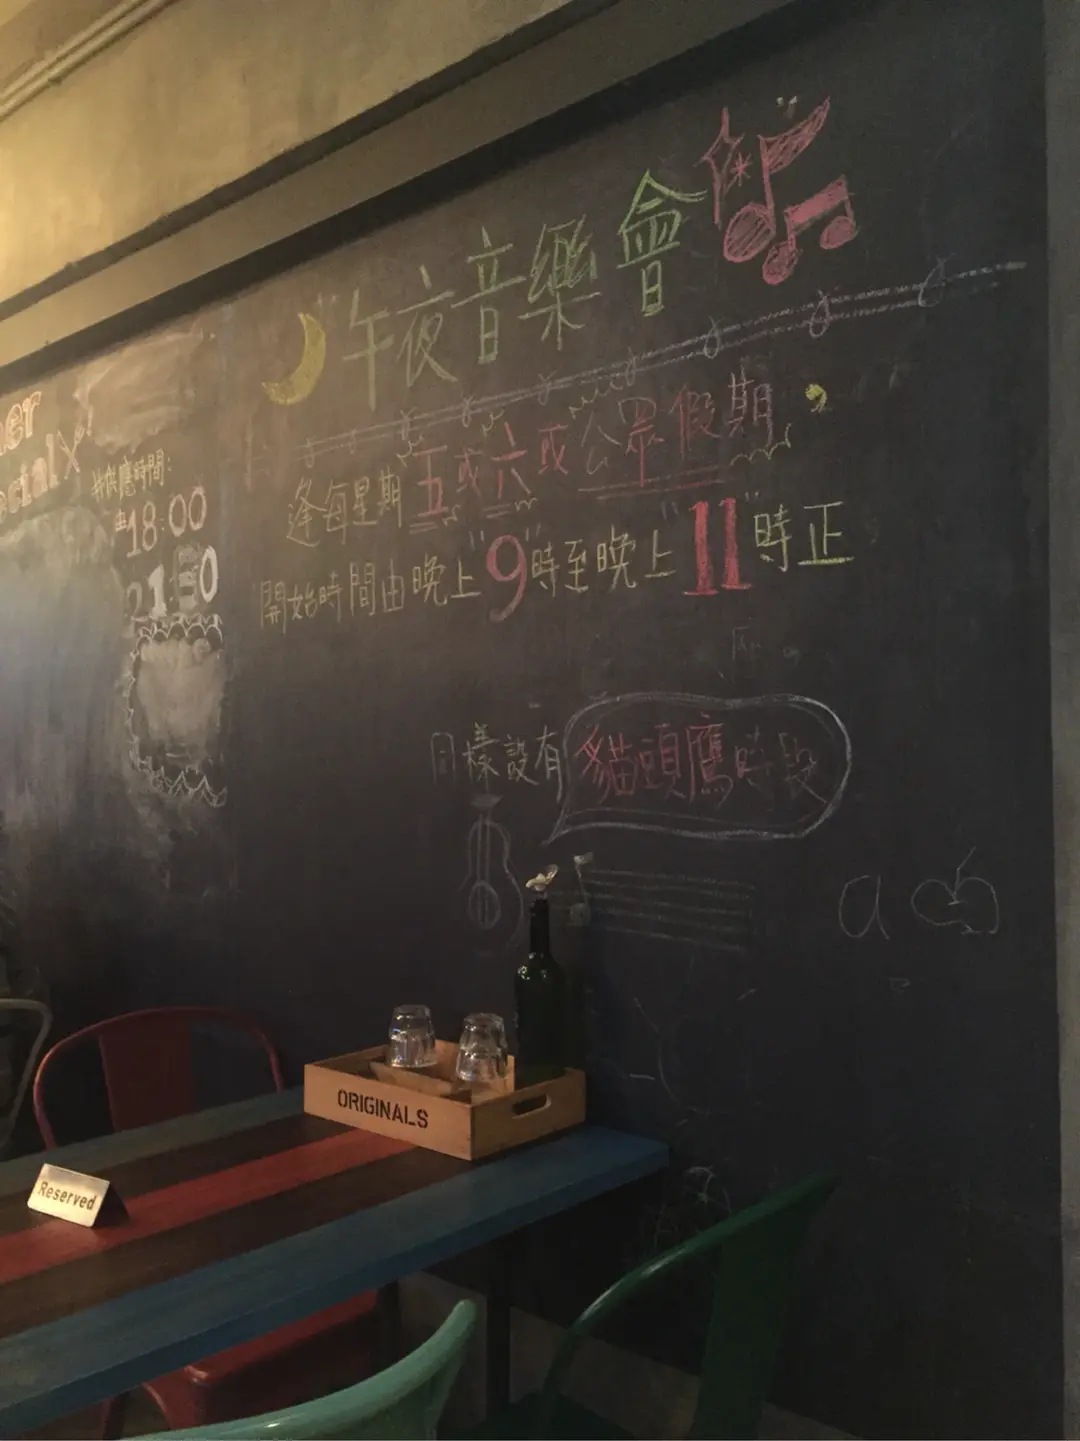 午夜音樂會
逢每星期五或六或公眾假期
開始時間由晚上"9"時至晚上"11"時正
同樣設有貓頭鷹時段
供應時間:
由18:00
ORIGINALS
Reserved
a